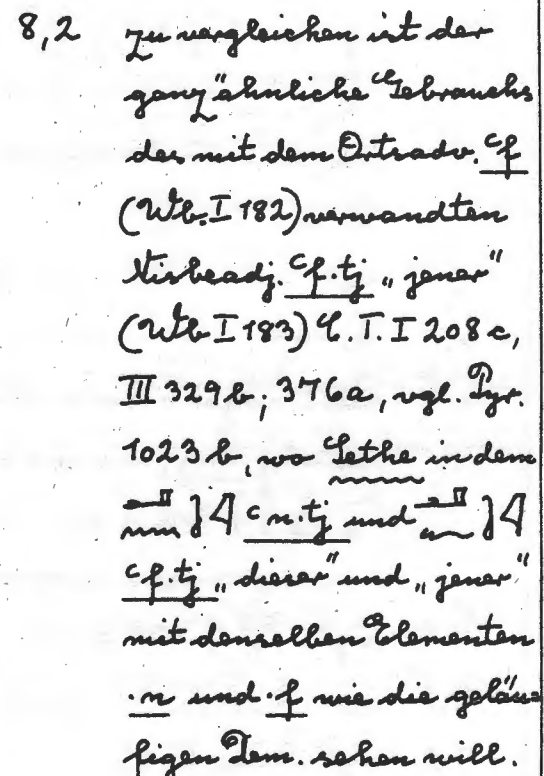 8,2 zu vergleichen ist der
ganz ähnliche Gebrauch
des mit dem Ortsadv. ꜥf
(Wb. I 182) verwandten
Nisbeadj. ꜥf.tj „jener“
(Wb I 183) C.T. I 208 c,
III 329 b; 376a, vgl. Pyr.
1023 b, wo Sethe in dem
ꜥn.tj und
ꜥf.tj „dieser“ und „jener“
mit denselben Elementen
.n und .f wie die geläu=
figen Dem. sehen will.